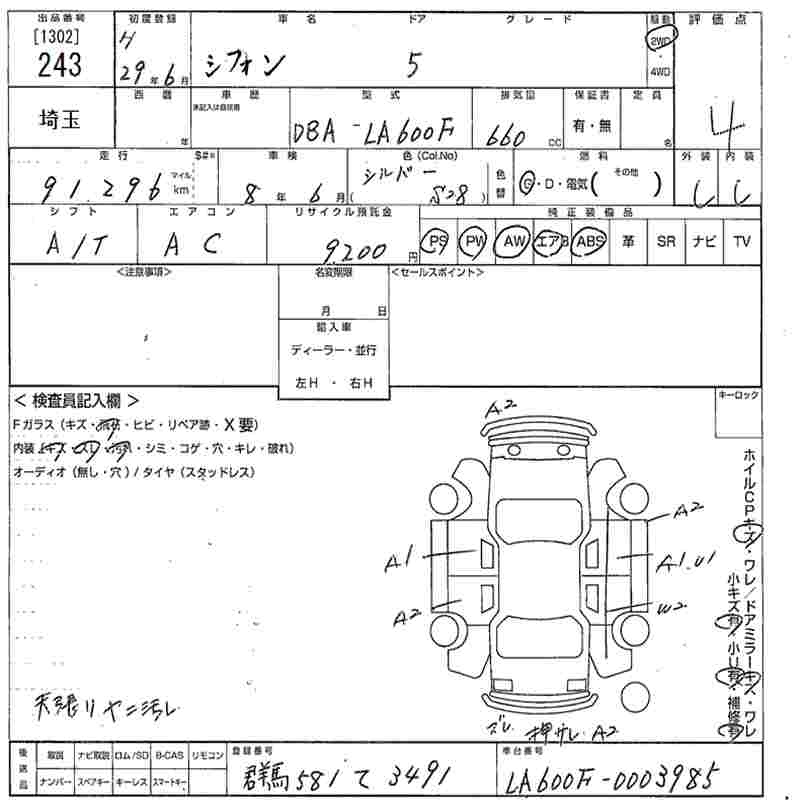 出品番号 初度登録 車名 ドア グレード 駆動 評価点
[1302]
243
29年6月 シフォン 5 2WD
4WD
4
埼玉 西暦 年 車歴 未記入は自家用 型式 DBA-LA600F 排気量 660 CC 保証書 有・無 定員 名
走行 91,296 マイル km $#* 車検 8年6月 色(Col.No) シルバー S28 色替 燃料 G・D・電気( その他 ) 外装 内装
シフト A/T エアコン AC リサイクル預託金 9,200円 純正装備品
PS PW AW エアB ABS 革 SR ナビ TV
<注意事項> 名変期限 <セールスポイント>
月 日
輸入車
ディーラー・並行
左H ・ 右H
< 検査員記入欄 > キーロック
Fガラス(キズ・飛石・ヒビ・リペア跡・X要)
内装(キズ・スレ・汚れ・シミ・コゲ・穴・キレ・破れ)
オーディオ(無し・穴)/タイヤ(スタッドレス)
A2
A2
A1 A1.U1
A2 W2
ホイルCPキズ・ワレ/ドアミラーキズ・ワレ
小キズ有・小U有・補修有
天張リヤニ汚レ
押サレ A2
後送品 取説 ナビ取説 ロム/SD B-CAS リモコン 登録番号 車台番号
ナンバー スペアキー キーレス スマートキー 群馬581て3491 LA600F-0003985